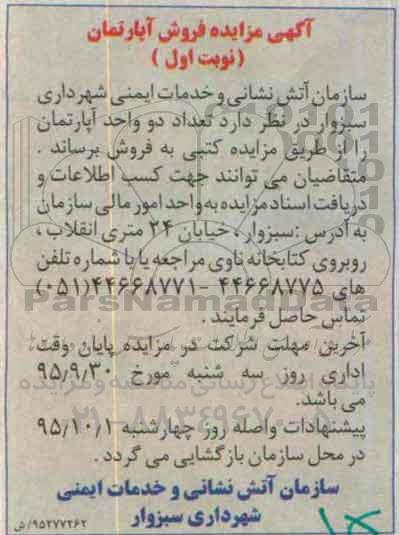 آگهی مزایده فروش آپارتمان
(نوبت اول )
سازمان آتش نشانی و خدمات ایمنی شهرداری
سبزوار در نظر دارد تعداد دو واحد آپارتمان
را از طریق مزایده کتبی به فروش برساند .
متقاضیان می توانند جهت کسب اطلاعات و
دریافت اسناد مزایده به واحد امور مالی سازمان
به آدرس :سبزوار ، خیابان ۲۴ متری انقلاب ،
روبروی کتابخانه ناوی مراجعه یا با شماره تلفن
های ۴۴۶۶۸۷۷۵ -۴۴۶۶۸۷۷۱(۰۵۱)
ParsNamadData
تماس حاصل فرمایند .
آخرین مهلت شرکت در مزایده پایان وقت
اداری روز سه شنبه مورخ ۹۵/۹/۳۰
پایگاه اطلاع رسانی مناقصه و مزایده
می باشد.
۰۲۱-۸۸۳۴۹۶۷۰
پیشنهادات واصله روز چهارشنبه ۹۵/۱۰/۱
در محل سازمان بازگشایی می گردد .
سازمان آتش نشانی و خدمات ایمنی
شهرداری سبزوار
۹۵۲۷۷۲۶۲/ش